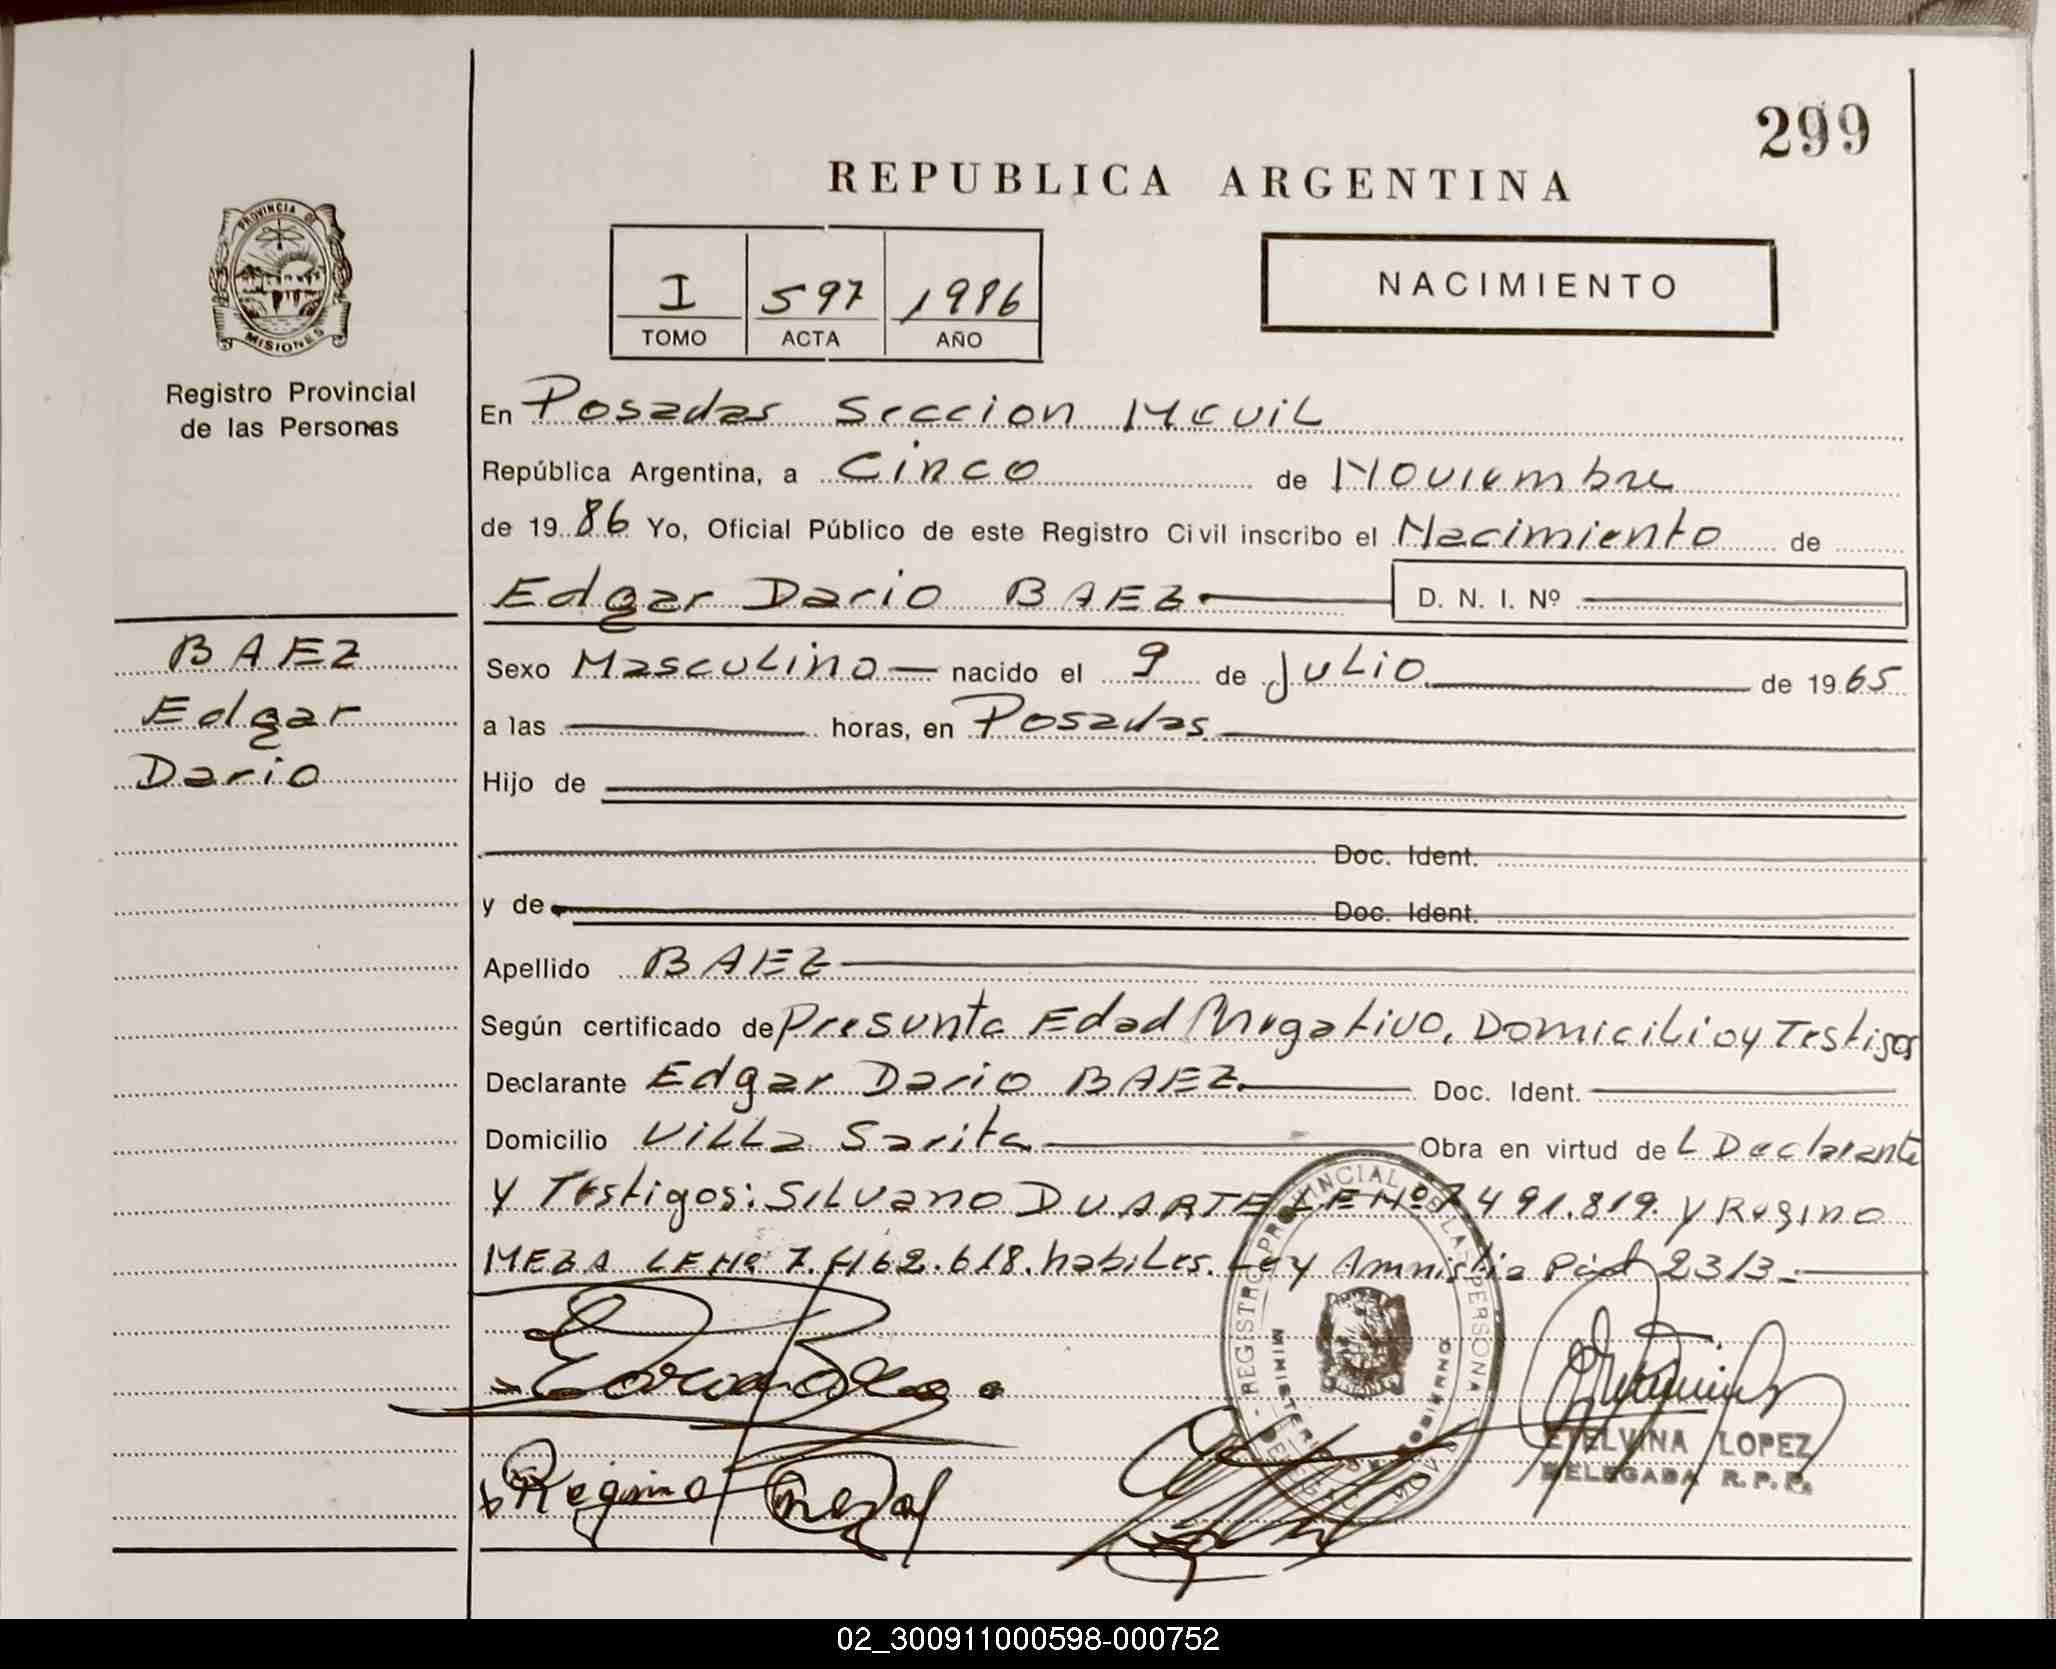 299
REPUBLICA ARGENTINA
PROVINCIA DE
MISIONES
Registro Provincial
de las Personas
I 597 1986
TOMO ACTA AÑO
NACIMIENTO
En Posadas Seccion Movil
República Argentina, a Cinco de Noviembre
de 19 86 Yo, Oficial Público de este Registro Civil inscribo el Nacimiento de
Edgar Dario BAEZ D. N. I. Nº
BAEZ
Edgar
Dario
Sexo Masculino nacido el 9 de Julio de 19 65
a las horas, en Posadas
Hijo de
Doc. Ident.
y de Doc. Ident.
Apellido BAEZ
Según certificado de Presunta Edad Negativo, Domicilio y Testigos
Declarante Edgar Dario BAEZ Doc. Ident.
Domicilio Villa Sarita Obra en virtud de L Declarante
y Testigos: Silvano DUARTE LE Nº 7.491.819. y Regino
MEZA LE Nº 7.462.618. habiles. Ley Amnistia Pcial 2313.
REGISTRO PROVINCIAL DE LAS PERSONA
MINISTERIO GOBIERNO
Regino Meza
ETELVINA LOPEZ
DELEGADA R.P.P.
02_300911000598-000752